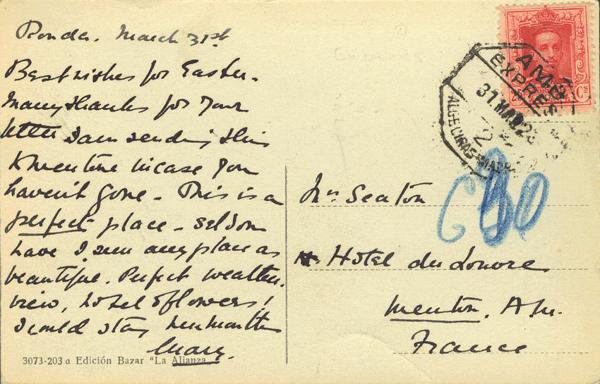 Ronda. March 31st
Best wishes for Easter.
Many thanks for your
letter I am sending this
to Mentone in case you
haven't gone. This is a
perfect place - seldom
have I seen any place as
beautiful. Perfect weather,
view, hotel & flowers!
I could stay here months
Mary.
3073-203 a Edición Bazar "La Alianza
AMB
EXPRES
31 MAR 2
ALGECIRAS
Cs
680
Mrs Seaton
Hotel du Louvre
Menton, A.M.
France